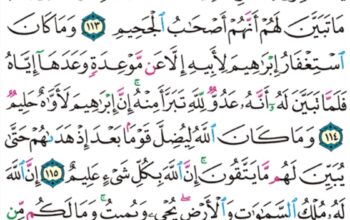 مَا تَبَيَّنَ لَهُمْ أَنَّهُمْ أَصْحَٰبُ ٱلْجَحِيمِ ١١٣ وَمَا كَانَ
ٱسْتِغْفَارُ إِبْرَٰهِيمَ لِأَبِيهِ إِلَّا عَن مَّوْعِدَةٍ وَعَدَهَآ إِيَّاهُ
فَلَمَّا تَبَيَّنَ لَهُۥٓ أَنَّهُۥ عَدُوٌّ لِّلَّهِ تَبَرَّأَ مِنْهُ ۚ إِنَّ إِبْرَٰهِيمَ لَأَوَّٰهٌ حَلِيمٌ
١١٤ وَمَا كَانَ ٱللَّهُ لِيُضِلَّ قَوْمًۢا بَعْدَ إِذْ هَدَىٰهُمْ حَتَّىٰ
يُبَيِّنَ لَهُم مَّا يَتَّقُونَ ۚ إِنَّ ٱللَّهَ بِكُلِّ شَىْءٍ عَلِيمٌ ١١٥ إِنَّ ٱللَّهَ
لَهُۥ مُلْكُ ٱلسَّمَٰوَٰتِ وَٱلْأَرْضِ ۖ يُحْىِۦ وَيُمِيتُ ۚ وَمَا لَكُم مِّن